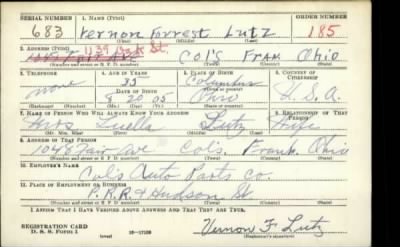 SERIAL NUMBER 1. NAME (Print) ORDER NUMBER
683 Vernon Forrest Lutz 185
(First) (Middle) (Last)
2. ADDRESS (Print)
1139 St.
1048 Fair Ave Col's Fran Ohio
(Number and street or R. F. D. number) (Town) (County) (State)
3. TELEPHONE 4. AGE IN YEARS 5. PLACE OF BIRTH 6. COUNTRY OF CITIZENSHIP
none 35 Columbus
DATE OF BIRTH
8 20 05 Ohio U.S.A.
(Exchange) (Number) (Mo.) (Day) (Yr.) (State or country)
7. NAME OF PERSON WHO WILL ALWAYS KNOW YOUR ADDRESS 8. RELATIONSHIP OF THAT PERSON
Mrs Luella Lutz Wife
(Mr., Mrs., Miss) (First) (Middle) (Last)
9. ADDRESS OF THAT PERSON
1048 Fair Ave Col's. Frank. Ohio
(Number and street or R. F. D. number) (Town) (County) (State)
10. EMPLOYER'S NAME
Col's Auto Parts Co.
11. PLACE OF EMPLOYMENT OR BUSINESS
P.R.R & Hudson St
(Number and street or R. F. D. number) (Town) (County) (State)
I AFFIRM THAT I HAVE VERIFIED ABOVE ANSWERS AND THAT THEY ARE TRUE.
REGISTRATION CARD
D. S. S. Form 1 16—17105 Vernon F Lutz
(Registrant's signature)